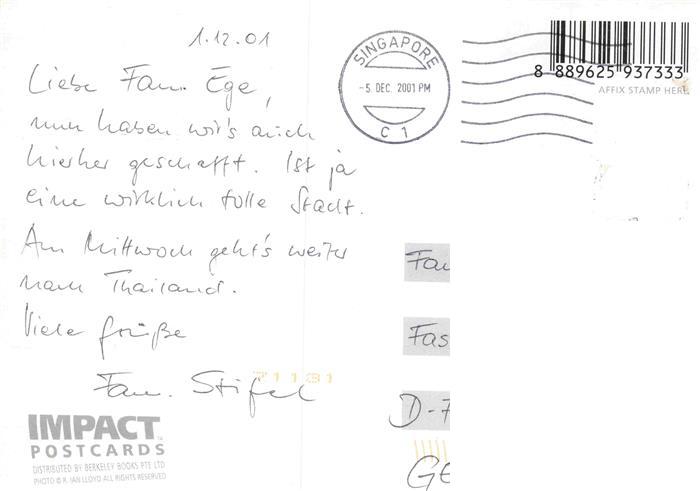 1.12.01
Liebe Fam. Ege,
nun haben wir's auch
hierher geschafft. Ist ja
eine wirklich tolle Stadt.
Am Mittwoch geht's weiter
nach Thailand.
Viele Grüße
Fam. Stifel
71131
IMPACT™
POSTCARDS
DISTRIBUTED BY BERKELEY BOOKS PTE LTD
PHOTO © R. IAN LLOYD ALL RIGHTS RESERVED
SINGAPORE
-5. DEC. 2001 PM
C 1
8 889625 937333
AFFIX STAMP HERE
Fam
Fas
D-7
GE